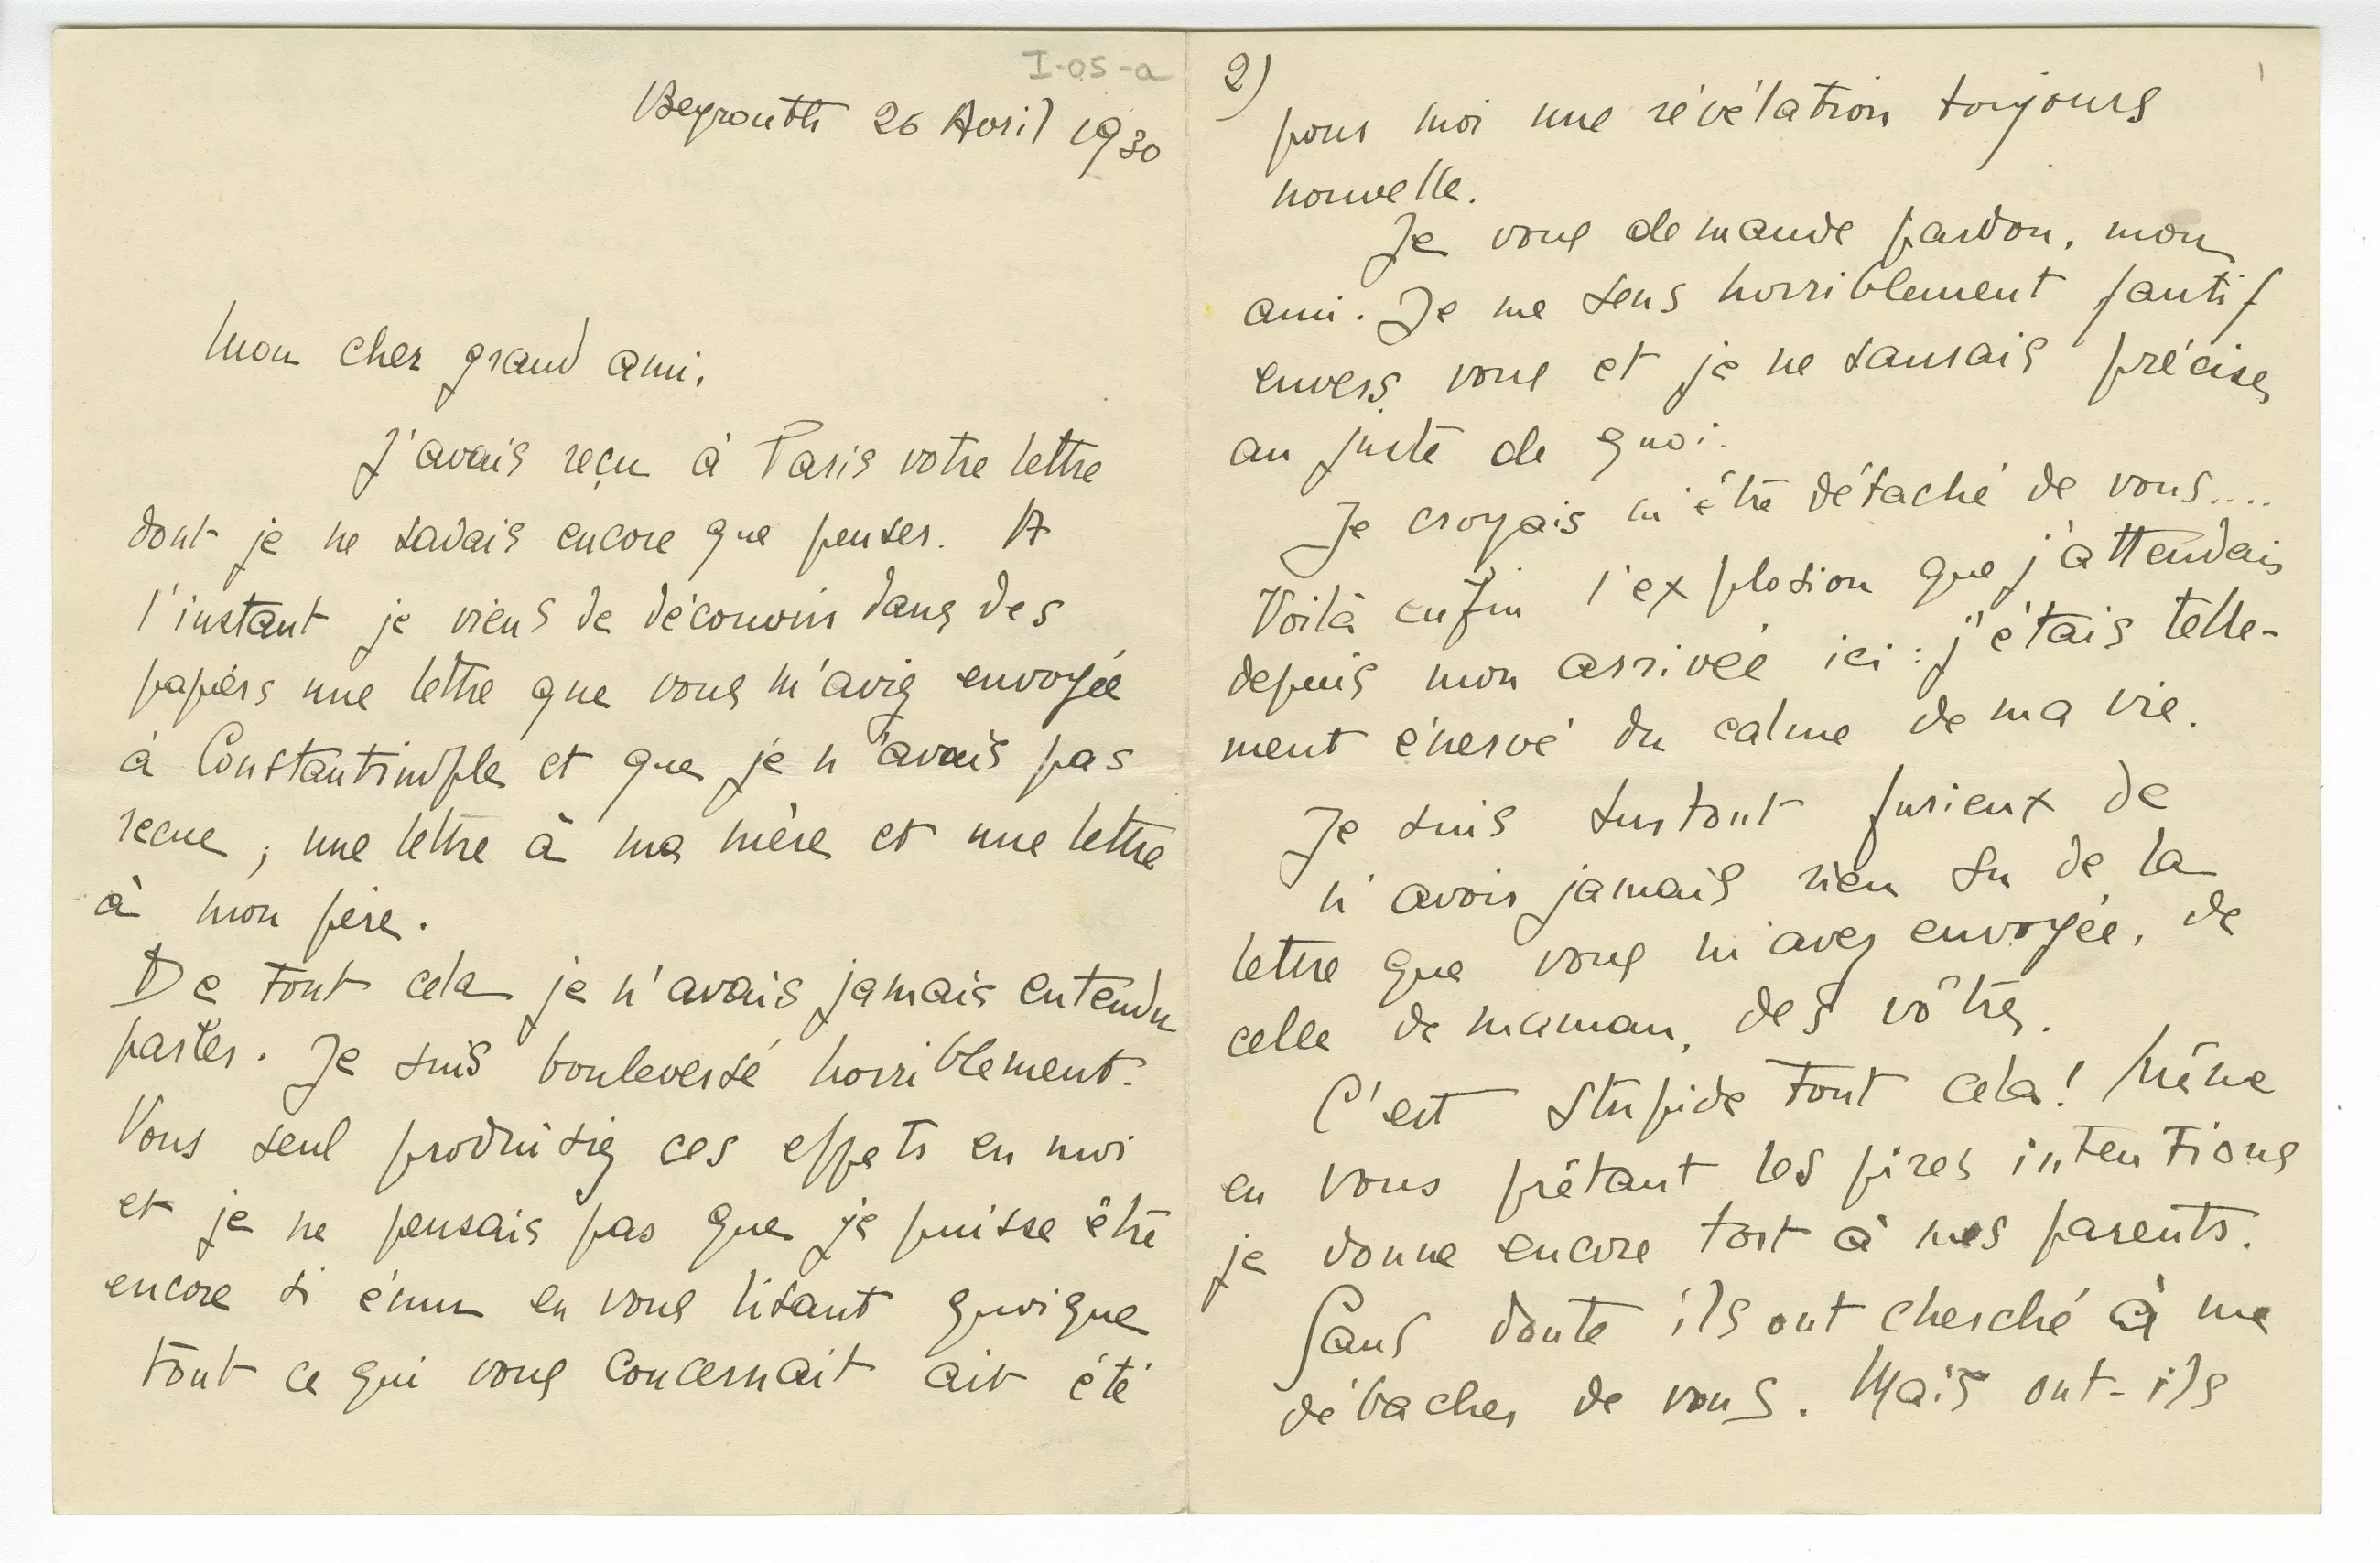 I-05-a
Beyrouth 26 Avril 1930
Mon cher grand ami,
J'avais reçu à Paris votre lettre
dont je ne savais encore que penser. A
l'instant je viens de découvrir dans des
papiers une lettre que vous m'aviez envoyée
à Constantinople et que je n'avais pas
recue, une lettre à ma mère et une lettre
à mon père.
De tout cela je n'avais jamais entendu
parler. Je suis bouleversé horriblement.
Vous seul produisiez ces effets en moi
et je ne pensais pas que je puisse être
encore si ému en vous lisant quoique
tout ce qui vous concernait ait été
2)
pour moi une révélation toujours
nouvelle.
Je vous demande pardon, mon
ami. Je me sens horriblement fautif
envers vous et je ne saurais préciser
au juste de quoi.
Je croyais m'être détaché de vous....
Voilà enfin l'explosion que j'attendais
depuis mon arrivée ici : j'étais telle-
ment énervé du calme de ma vie.
Je suis surtout furieux de
n'avoir jamais rien su de la
lettre que vous m'avez envoyée, de
celle de maman, des vôtres.
C'est stupide tout cela! Même
en vous prêtant les pires intentions
je donne encore tort à mes parents.
Sans doute ils ont cherché à me
détacher de vous. Mais ont-ils